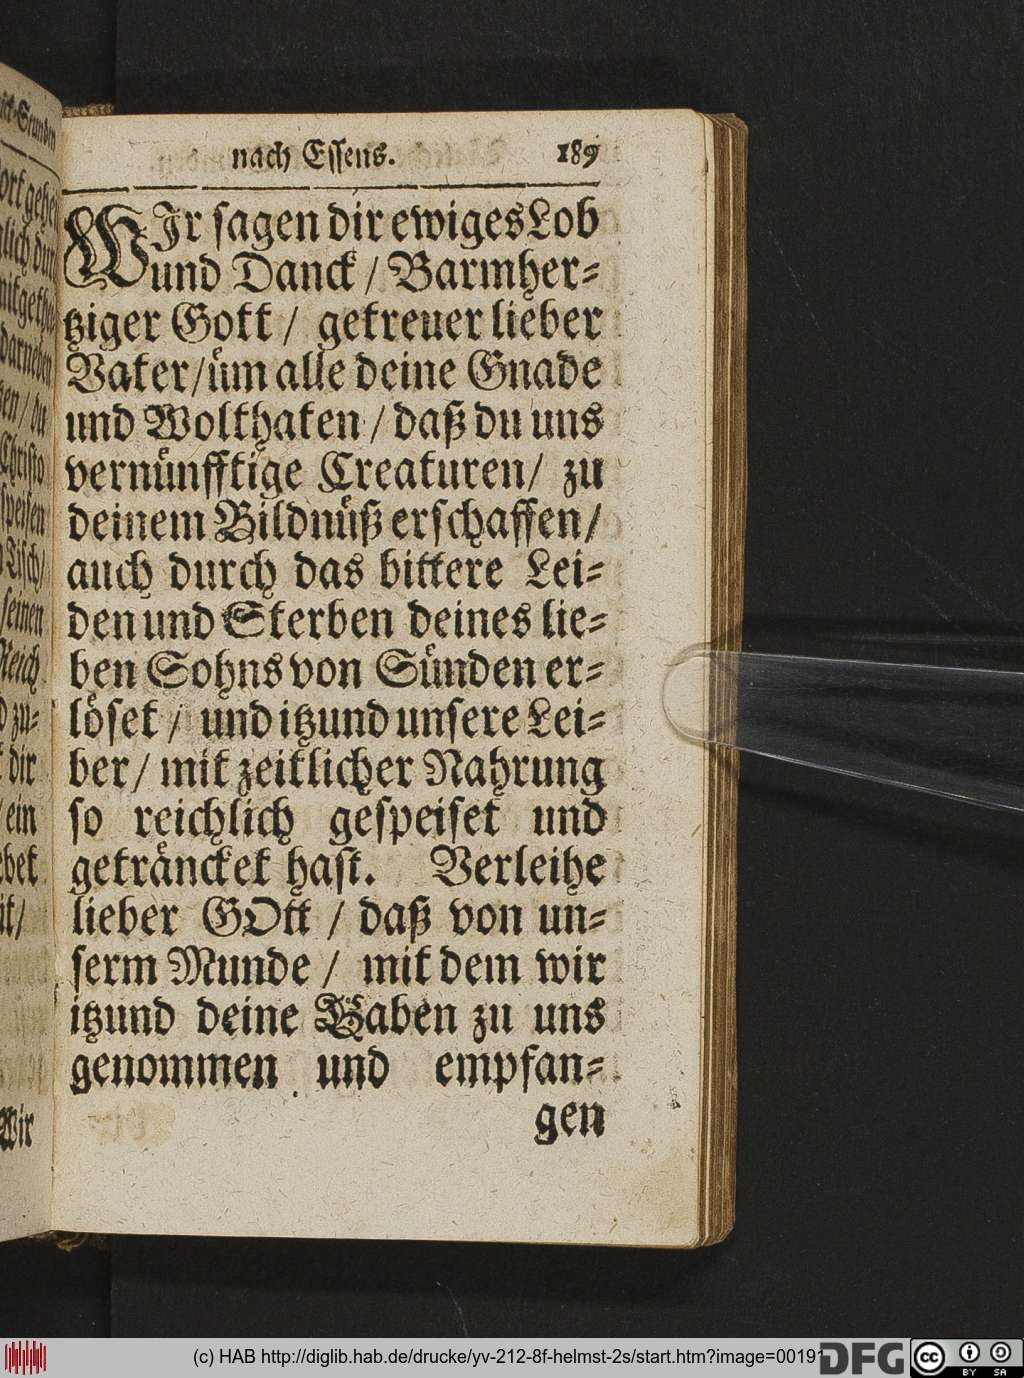 nach Essens. 189
WIr sagen dir ewiges Lob
und Danck / Barmher-
tziger Gott / getreuer lieber
Vater/üm alle deine Gnade
und Wolthaten / daß du uns
vernünfftige Creaturen/ zu
deinem Bildnüß erschaffen/
auch durch das bittere Lei-
den und Sterben deines lie-
ben Sohns von Sünden er-
löset / und itzund unsere Lei-
ber/ mit zeitlicher Nahrung
so reichlich gespeiset und
geträncket hast. Verleihe
lieber GOtt / daß von un-
serm Munde / mit dem wir
itzund deine Gaben zu uns
genommen und empfan-
gen
Christo
speisen
Tisch/
seinen
Reich
zu-
dir
ein
Wir
(c) HAB http://diglib.hab.de/drucke/yv-212-8f-helmst-2s/start.htm?image=00191
DFG
cc BY SA